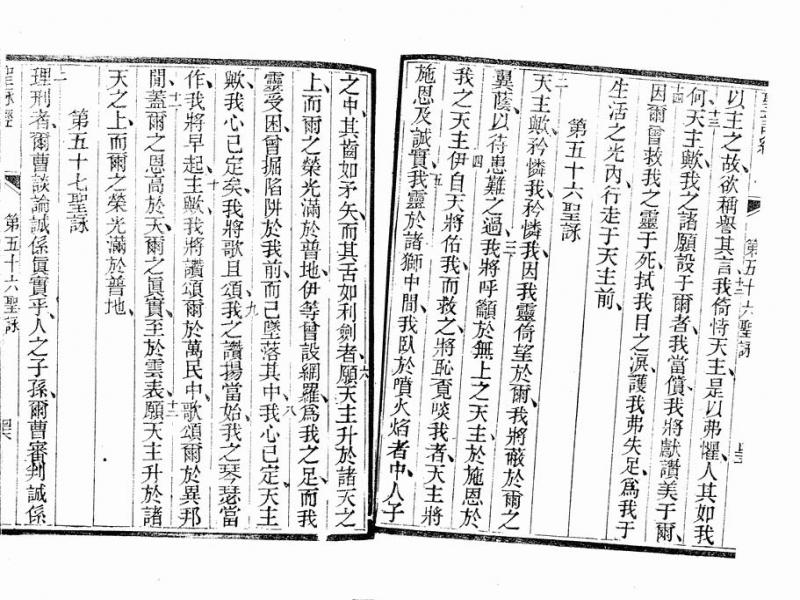 聖詠經
第五十六聖詠
以主之故欲稱譽其言我倚恃天主是以弗懼人其如我
十三
何天主歟我之諸願設于爾者我當償我將獻讚美于爾
十四
因爾曾救我之靈于死拭我目之淚護我弗失足為我于
生活之光內行走于天主前
第五十六聖詠
二
天主歟矜憐我矜憐我因我靈倚望於爾我將蔽於爾之
三
翼蔭以待患難之過我將呼籲於無上之天主於施恩於
四
我之天主伊自天將佑我而救之將恥寛啖我者天主將
五
施恩及誠實我靈於諸獅中間我臥於噴火焰者中人子
之中其齒如矛矢而其舌如利劍者願天主升於諸天之
六
上而爾之榮光滿於普地伊等曾設網羅為我之足而我
靈受困曾掘陷阱於我前而己墜落其中我心已定天主
八
歟我心已定矣我將歌且頌我之讚揚當始我之琴瑟當
九
作我將早起主歟我將讚頌爾於萬民中歌頌爾於異邦
十
間蓋爾之恩高於天爾之眞實至於雲表願天主升於諸
十二
天之上而爾之榮光滿於普地
第五十七聖詠
二
理刑者爾曹談論誠係眞實乎人之子孫爾曹審判誠係
聖詠經
第五十六聖詠